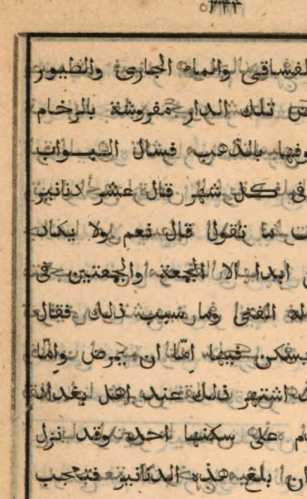 ٥٣٤٤
لفساقى والماء الجارى والطيور
تلك الدار مفروشة بالرخام
وفها بالذهب فسال البواب
فى كل شهر قال عشر دنانير
ما تقول قال نعم ولا يكاد
ابدا الا الجمعة والجمعتين فى
له الفتى وما سبب ذلك فقال
يسكن فيها اما ان يمرض واما
اشتهر ذلك عند اهل بغداد
على سكنها احد وقد نزل
بلغ هذه الدنانير فتعجب